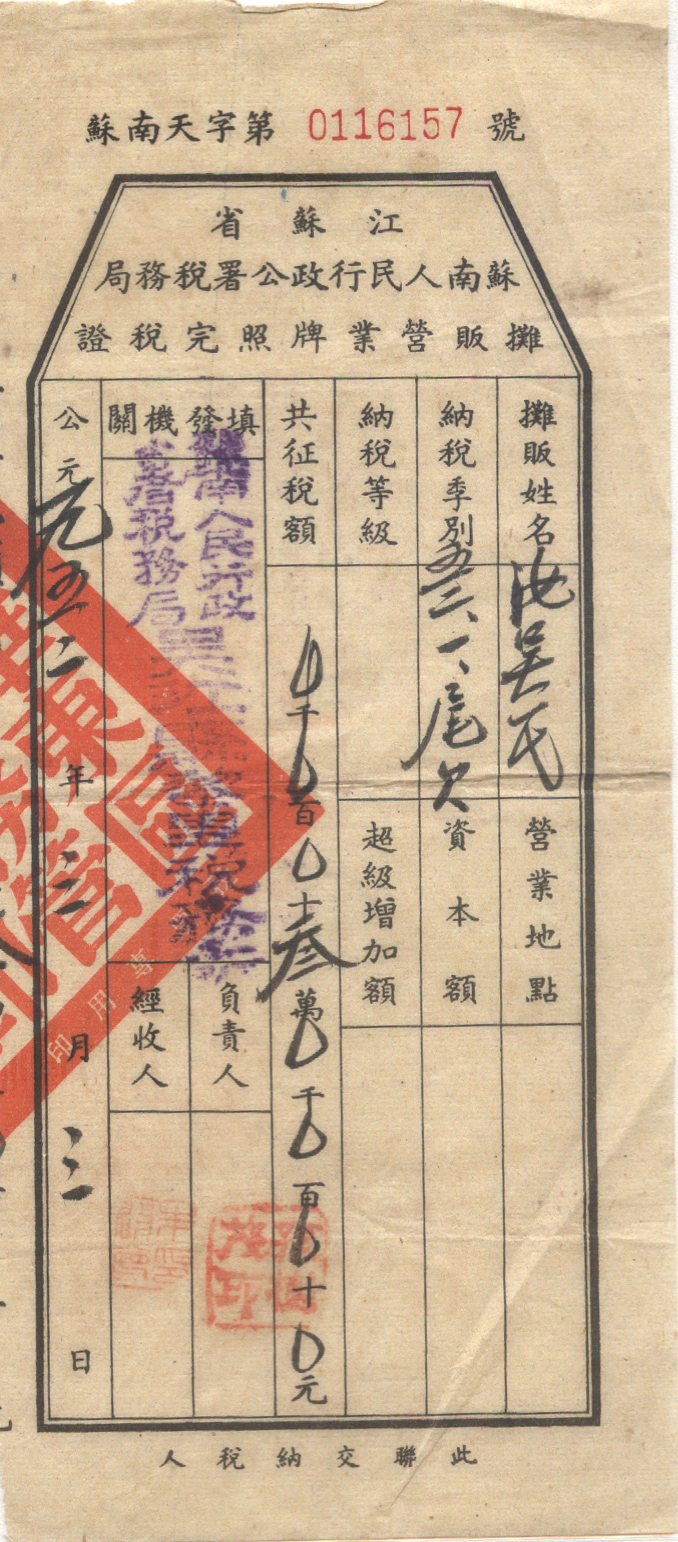 蘇南天字第 0116157 號
江蘇省
蘇南人民行政公署稅務局
攤販營業牌照完稅證
攤販姓名 沈吳氏
營業地點
納稅季別 五二、一、尾欠
資本額
納稅等級
超級增加額
共征稅額 0千0百0十叁萬0千0百0十0元
填發機關
蘇南人民行政
公署稅務局
負責人
經收人
公元一九五二年三月三日
專用印
此聯交納稅人